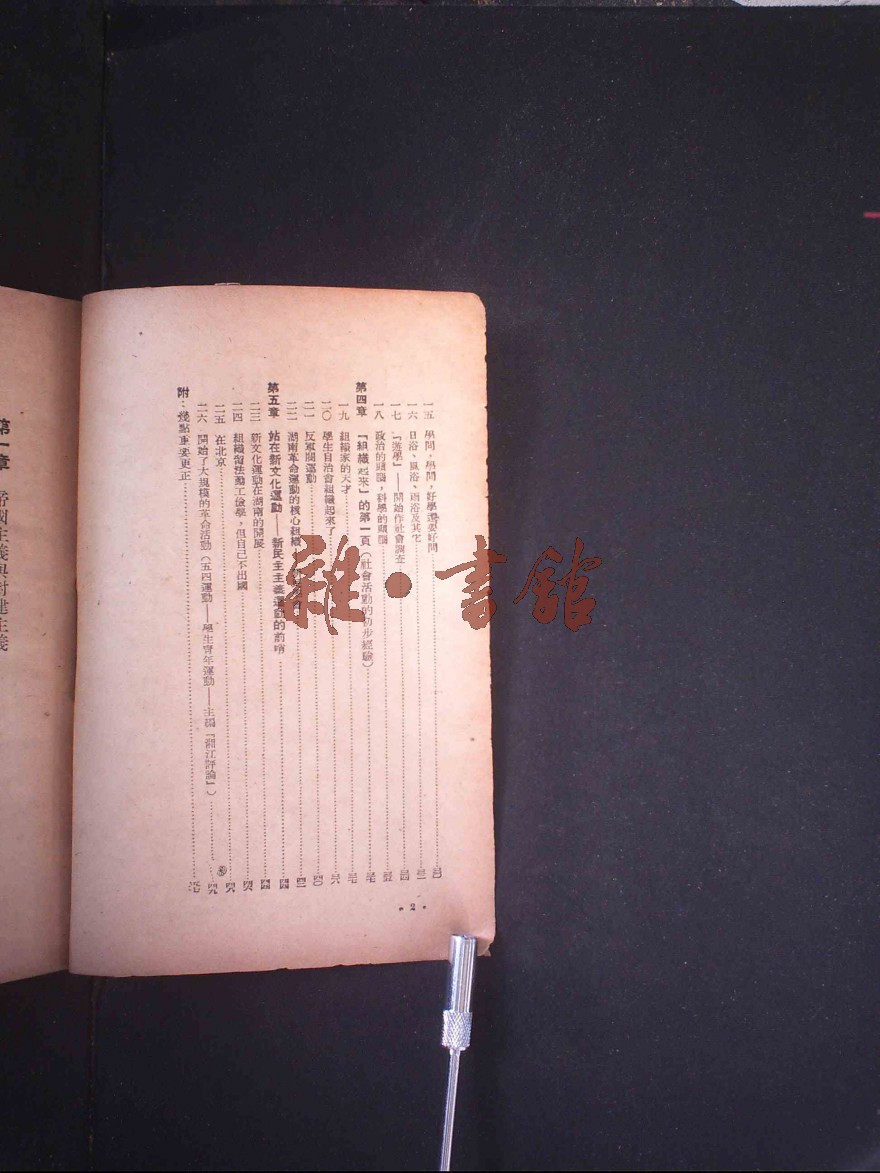 一五　學問，學問，好學還要好問……三〇
一六　日浴、風浴、雨浴及其它……三一
一七　『遊學』——開始作社會調查……三四
一八　政治的頭腦，科學的頭腦……三五
第四章　『組織起來』的第一頁（社會活動的初步經驗）……三七
一九　組織家的天才……三七
二〇　學生自治會組織起來了……三八
二一　反軍閥運動……四〇
二二　湖南革命運動的核心組織……四二
第五章　站在新文化運動——新民主主義運動的前哨……四四
二三　新文化運動在湖南的開展……四四
二四　組織留法勤工儉學，但自己不出國……四六
二五　在北京……四八
二六　開始了大規模的革命活動（五四運動——學生青年運動——主編『湘江評論』）……四九
附：幾點重要更正……六七
•2•
第一章　帝國主義與封建主義
雜·書館